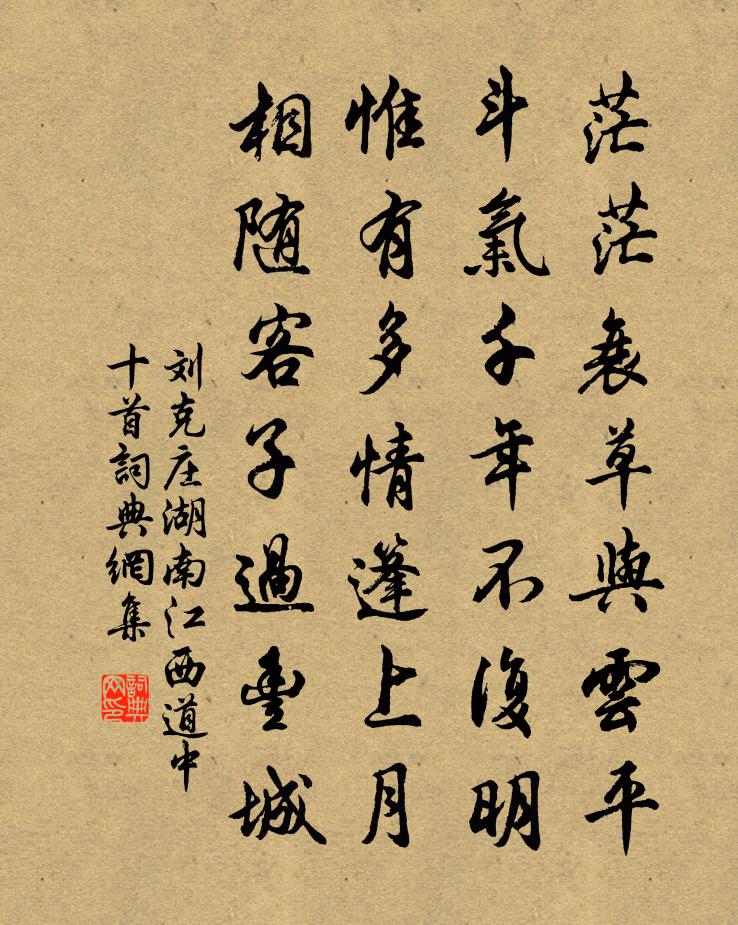 茫茫衰草與雲平
斗氣千年不復明
惟有多情篷上月
相随客子過豊城
刘克庄湖南江西道中
十首詞典網集
詞典
网印